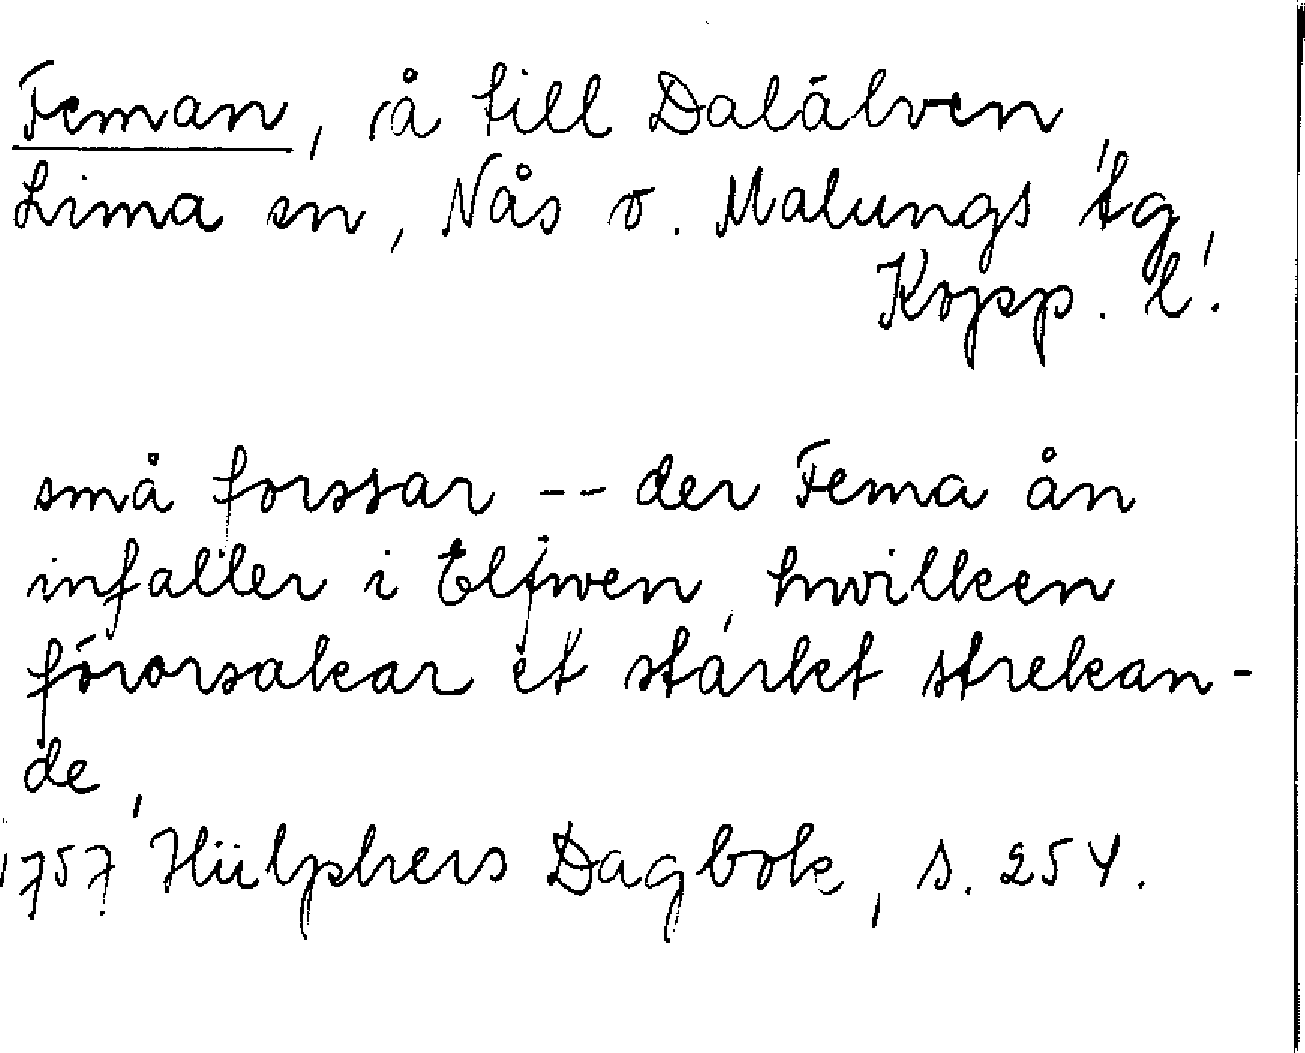 Feman, å till Dalälven,
Lima sn, Nås o. Malungs tg,
Kopp. l.
små forssar -- der Fema ån
infaller i Elfwen, hwilken
förorsakar et stärkt strekan-
de,
1757 Hülphers Dagbok, s. 254.